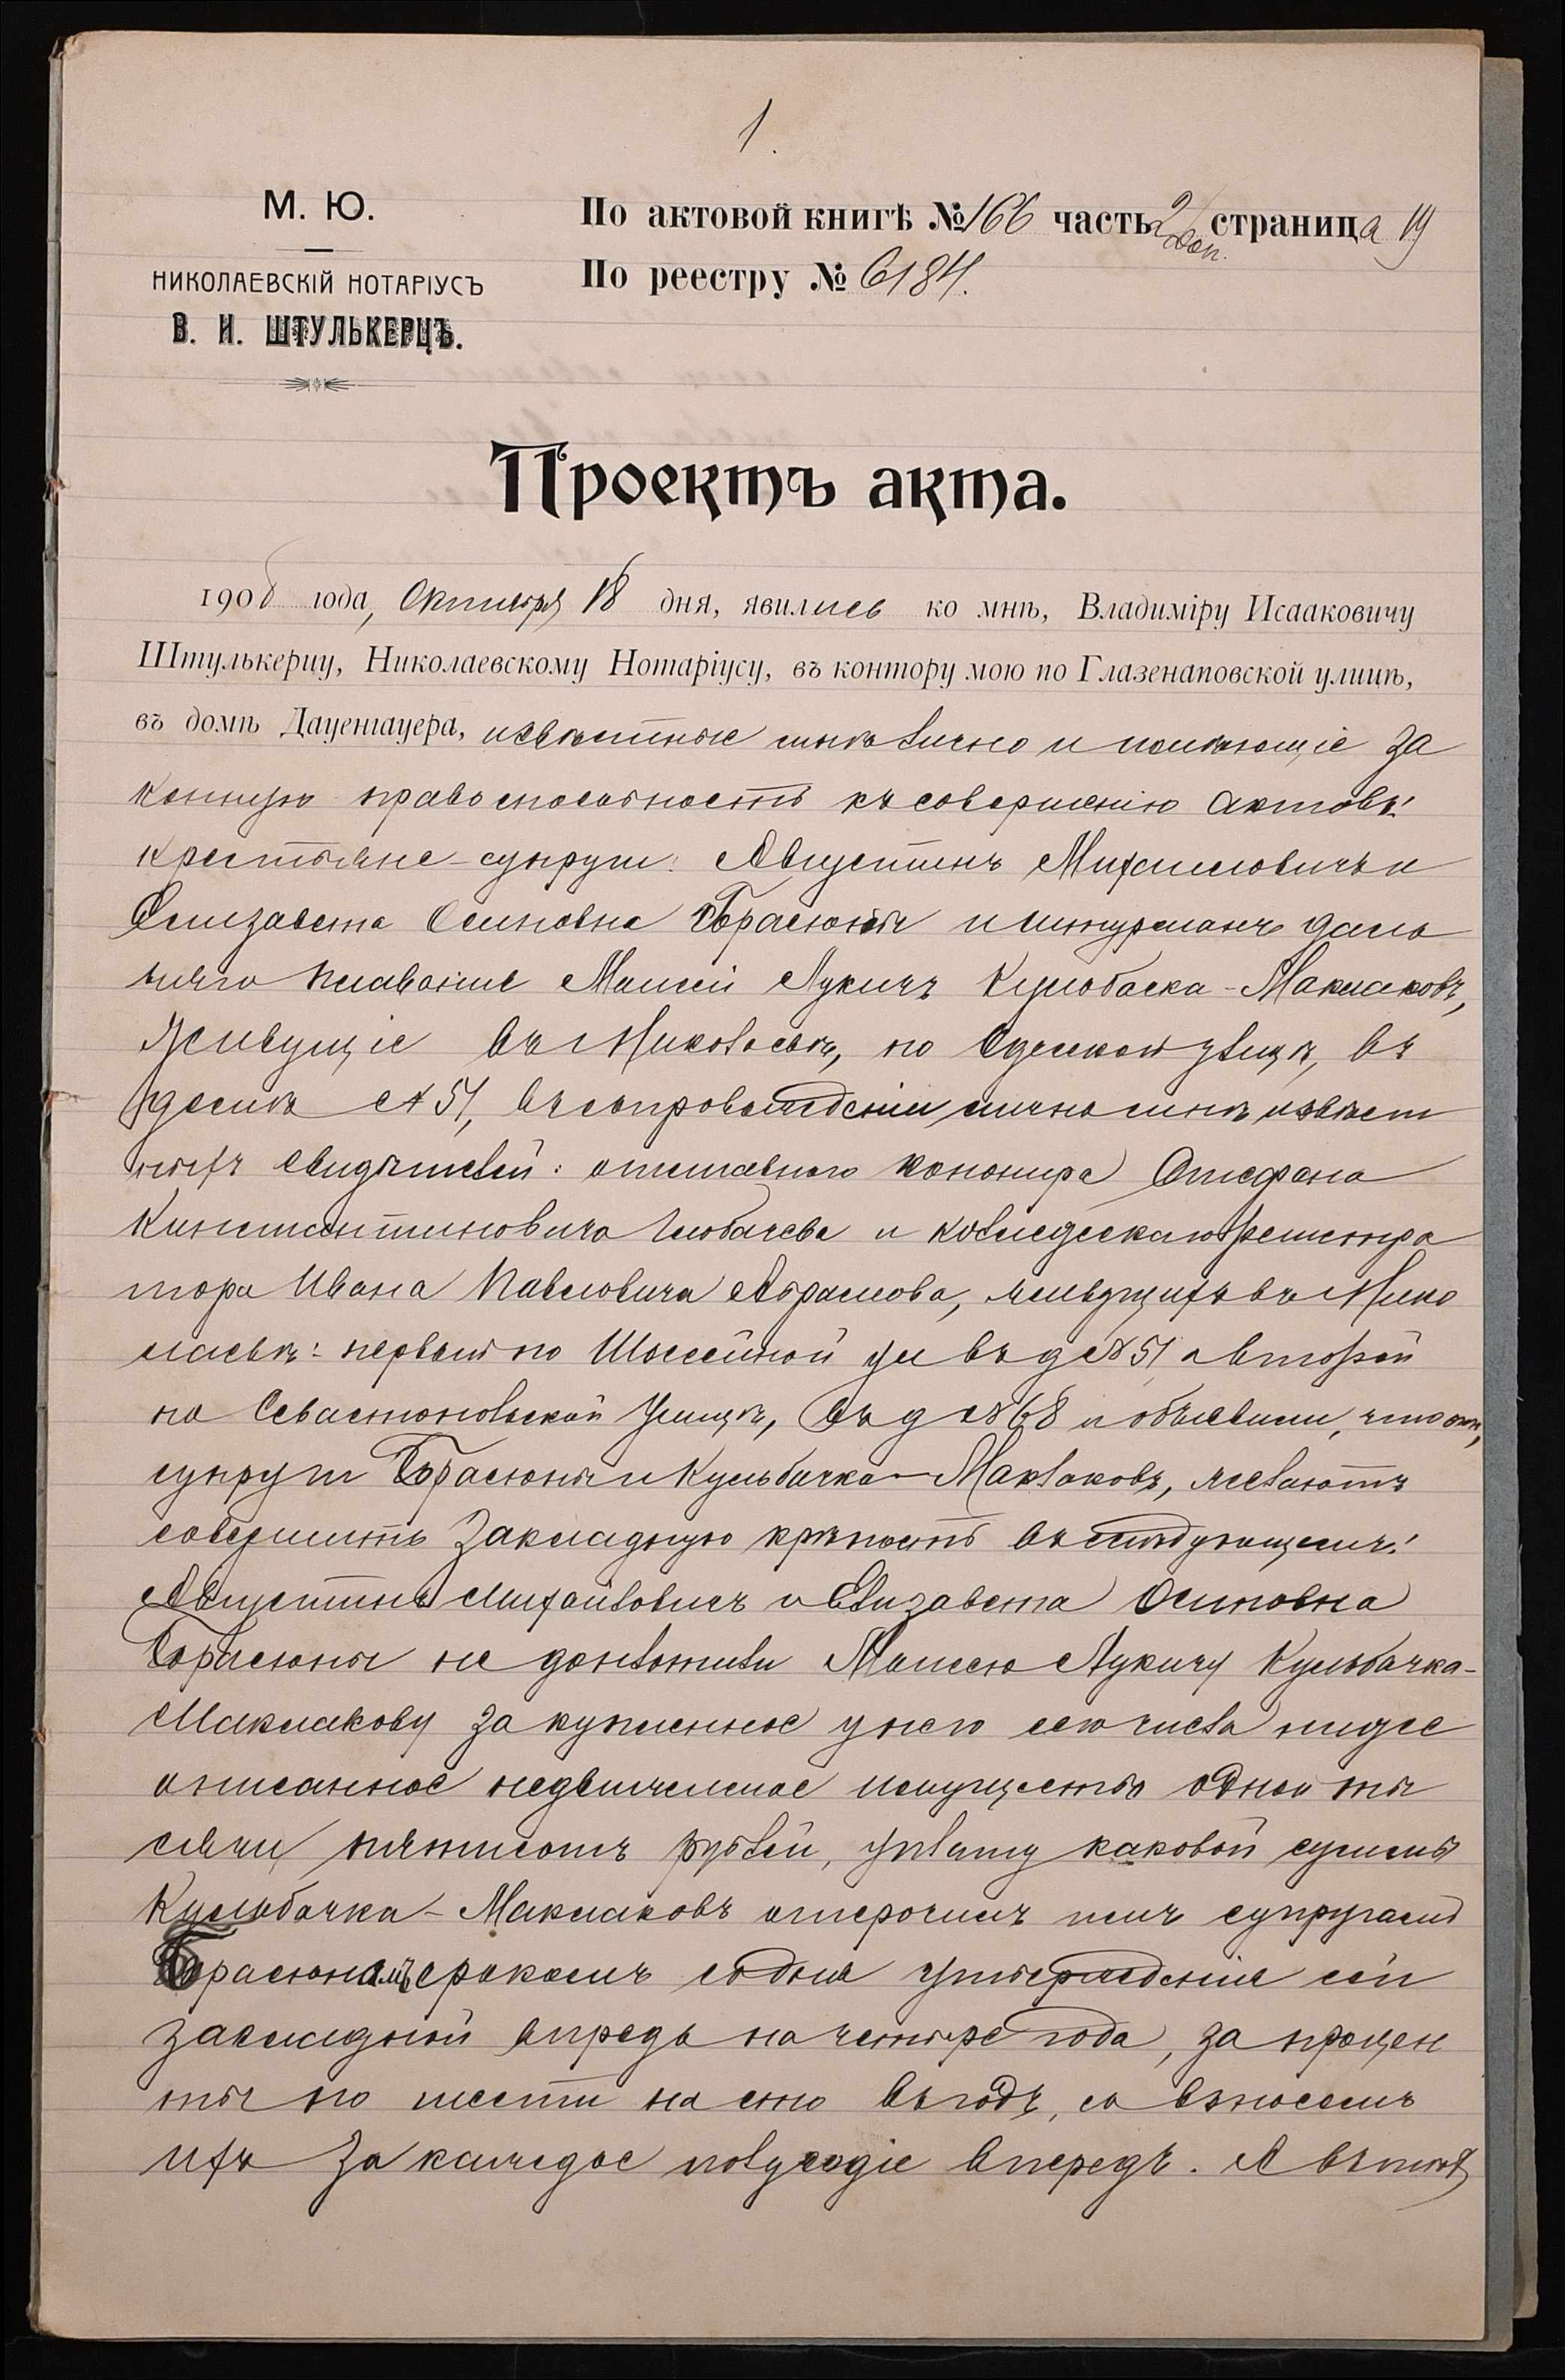 1.
М. Ю.
НИКОЛАЕВСКІЙ НОТАРІУСЪ
В. И. ШТУЛЬКЕРЦЪ.
По актовой книгѣ № 166 часть 2 доп. страница 19
По реестру № 6184.
Проектъ акта.
190 года, Октября 18 дня, явились ко мнѣ, Владиміру Исааковичу
Штулькерцу, Николаевскому Нотаріусу, въ контору мою по Глазенаповской улицѣ,
въ домѣ Дауенгауера, извѣстные мнѣ лично и имѣющіе за
конную правоспособность къ совершенію актовъ:
крестьяне-супруги: Августинъ Михайловичъ и
Елизавета Осиповна Борасюны и штурманъ даль
няго плаванія Моисей Лукичъ Кульбачка-Маклаковъ,
живущіе въ Николаевѣ, по Одесской улицѣ, въ
домѣ № 51, въ сопровожденіи лично мнѣ извѣст
ныхъ свидѣтелей: отставного канонира Стефана
Константиновича Глобачева и коллежскаго регистра
тора Ивана Павловича Абрамова, живущихъ въ Нико
лаевѣ: первый по Шоссейной ул въ д № 51, а второй
по Севастопольской улицѣ, въ д № 68 и объявили, что они,
супруги Борасюны и Кульбачка-Маклаковъ, желаютъ
совершить закладную крѣпость въ слѣдующемъ:
Августинъ Михайловичъ и Елизавета Осиповна
Борасюны не доплатили Моисею Лукичу Кульбачка-
Маклакову за купленное у него сего числа ниже
описанное недвижимое имущество одной ты
сячи пятисотъ рублей, уплату каковой суммы
Кульбачка-Маклаковъ отсрочилъ имъ супругамъ
Борасюнамъ срокомъ со дня утвержденія сей
закладной впредь на четыре года, за процен
ты по шести на сто въ годъ, со взносомъ
ихъ за каждое полугодіе впередъ. А въ